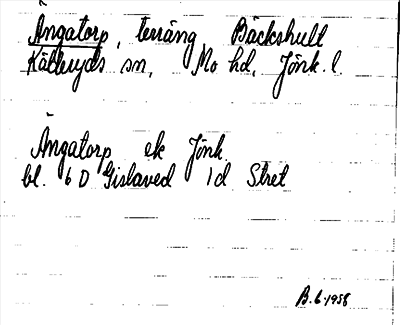 Ängatorp, terräng Bäckshult
Kålleryds sn, Mo hd, Jönk. l
Ängatorp ek Jönk
bl. 6 D Gislaved 1d Stret
B.6-1958